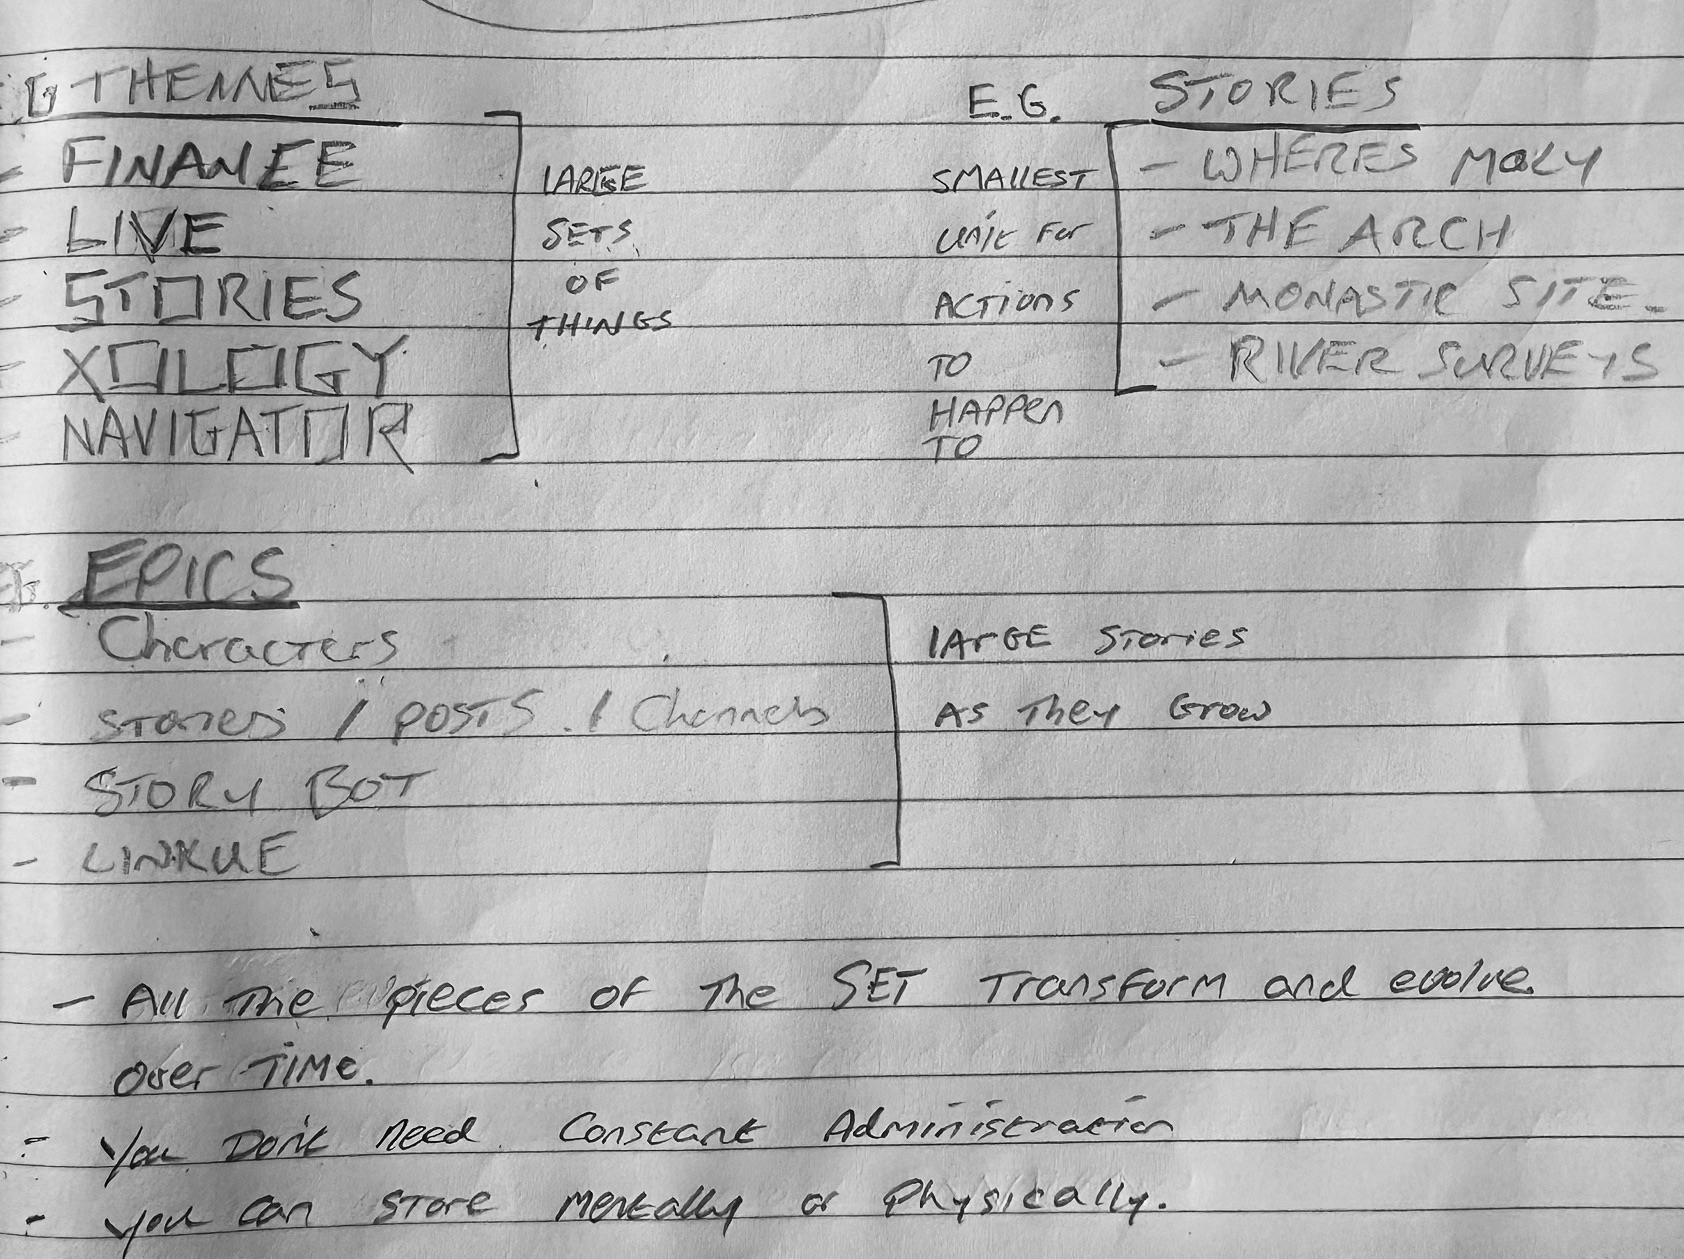 THEMES
- FINANCE
- LIVE
- STORIES
- XOLOGY
- NAVIGATOR
LARGE
SETS
OF
THINGS
E.G. STORIES
SMALLEST
UNIT FOR
ACTIONS
TO
HAPPEN
TO
- WHERES MOLY
- THE ARCH
- MONASTIC SITE
- RIVER SURVEYS
EPICS
- Characters
- STORIES / POSTS / Channels
- STORY BOT
- LINKUE
LARGE Stories
AS They Grow
- All The pieces of The SET Transform and evolve
over TIME.
- You Don't Need Constant Administration
- you can store mentally or Physically.